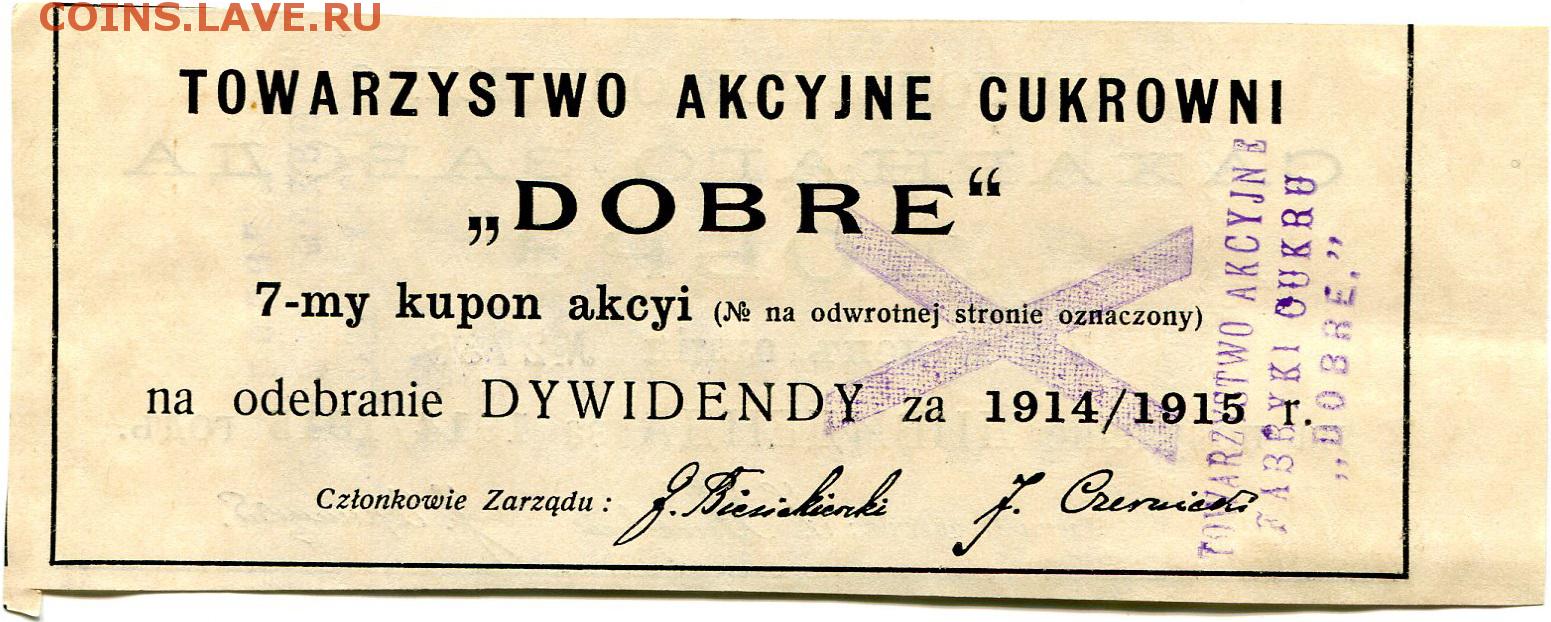 COINS.LAVE.RU
TOWARZYSTWO AKCYJNE CUKROWNI
„DOBRE“
7-my kupon akcyi (№ na odwrotnej stronie oznaczony)
na odebranie DYWIDENDY za 1914/1915 r.
Członkowie Zarządu: J. Biesiekierski J. Czernicki
TOWARZYSTWO AKCYJNE
FABRYKI CUKRU
„DOBRE.”